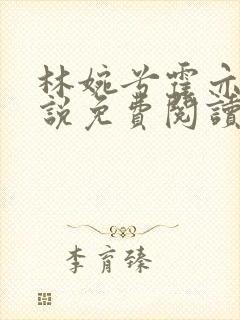 林婉兮霍亦
說免費閱讀
李育臻